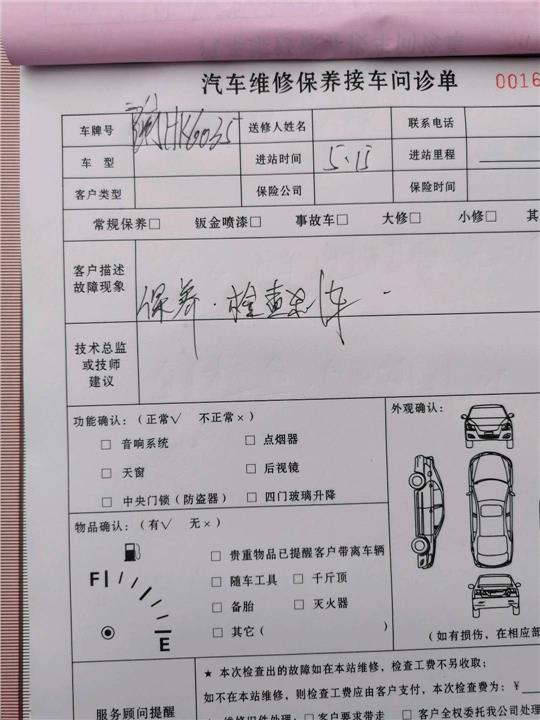 汽车维修保养接车问诊单 0016
车牌号 HK6035 送修人姓名 联系电话
车 型 进站时间 5.15 进站里程
客户类型 保险公司 保险时间
常规保养□ 钣金喷漆□ 事故车□ 大修□ 小修□ 其
客户描述
故障现象
保养.检查 车
技术总监
或技师
建议
功能确认:(正常√ 不正常×) 外观确认:
□ 音响系统 □ 点烟器
□ 天窗 □ 后视镜
□ 中央门锁(防盗器) □ 四门玻璃升降
物品确认:(有√ 无×)
□ 贵重物品已提醒客户带离车辆
F □ 随车工具 □ 千斤顶
□ 备胎 □ 灭火器
E □ 其它( )
(如有损伤,在相应部
★ 本次检查出的故障如在本站维修,检查工费不另收取;
如不在本站维修,则检查工费应由客户支付,本次检查费为:¥
服务顾问提醒
维修旧件处理:□ 客户要求带走 □ 客户全权委托我公司处理